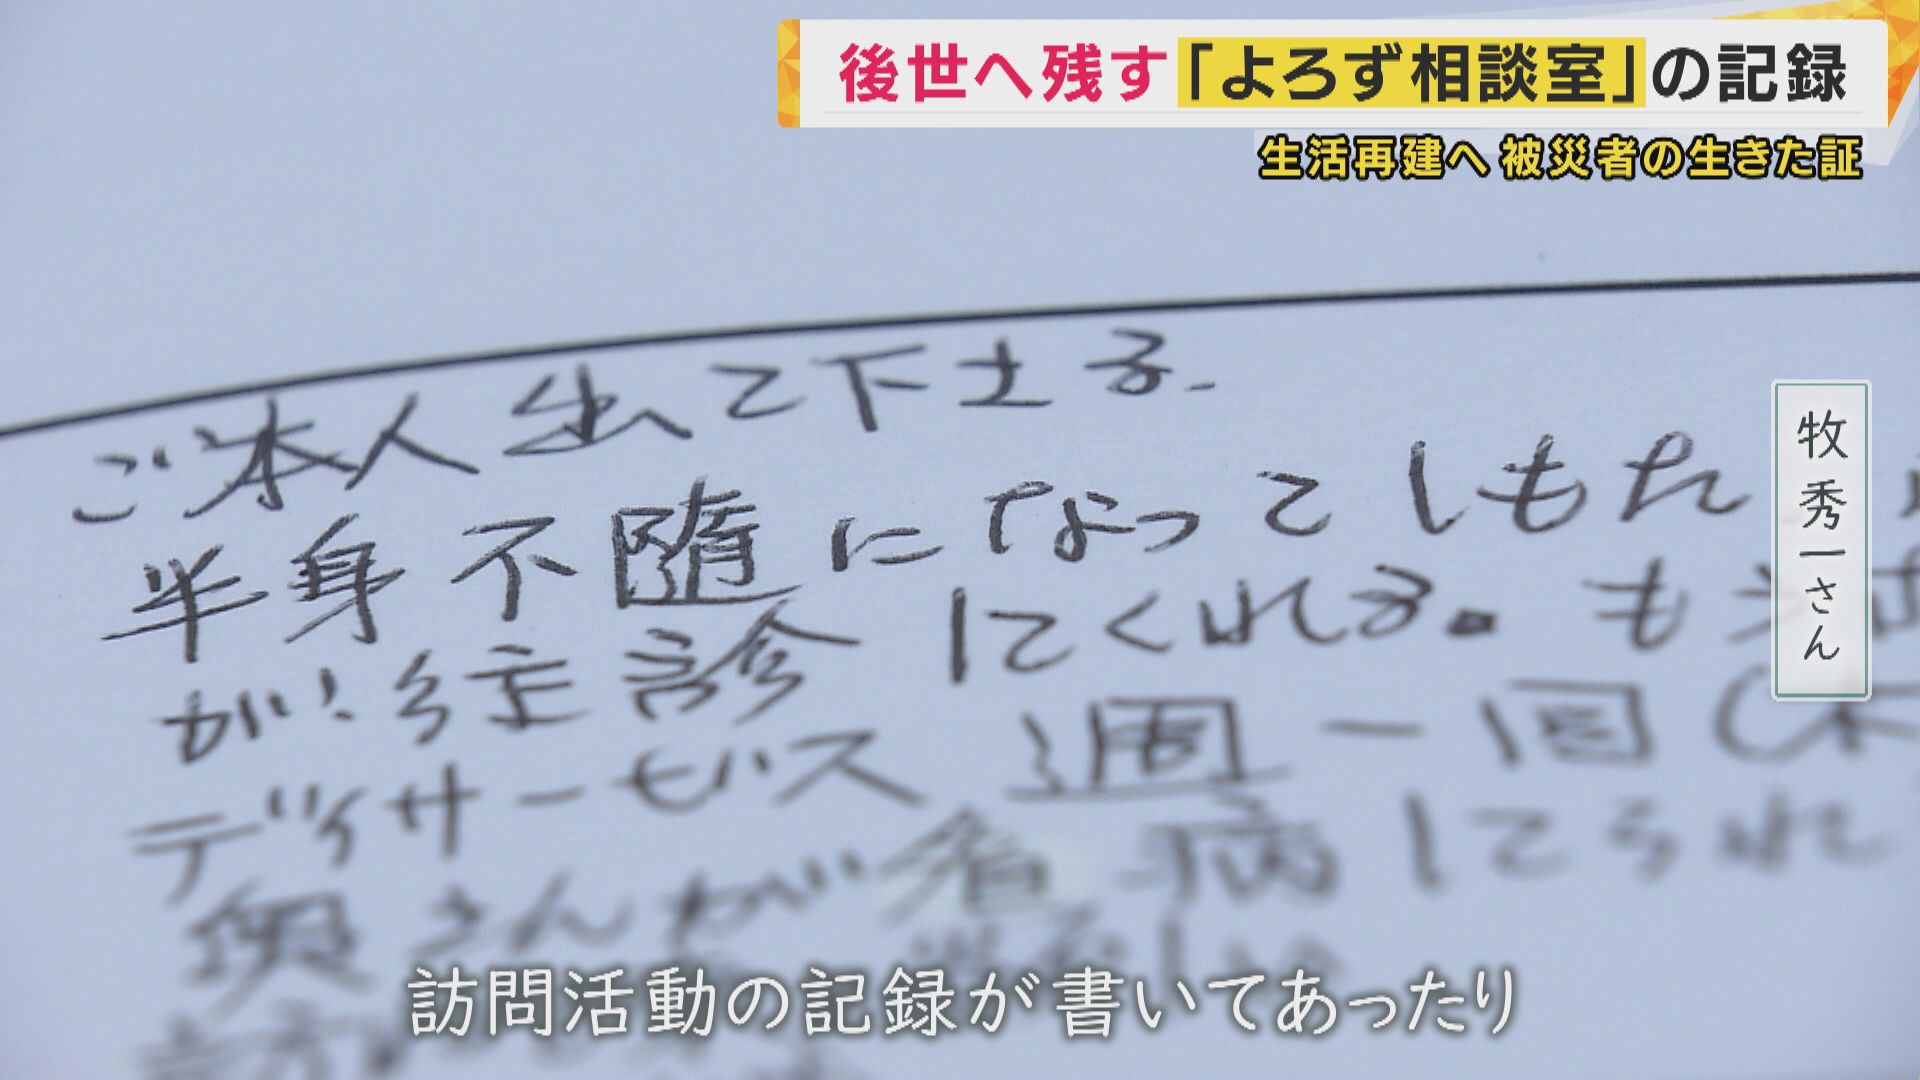 後世へ残す「よろず相談室」の記録
生活再建へ 被災者の生きた証
牧秀一さん
ご本人出て下さる.
半身不随になってしもた
が!往診してくれる.も
デイサービス 週一回(木
奥さんが看病してられ
訪問活動の記録が書いてあったり